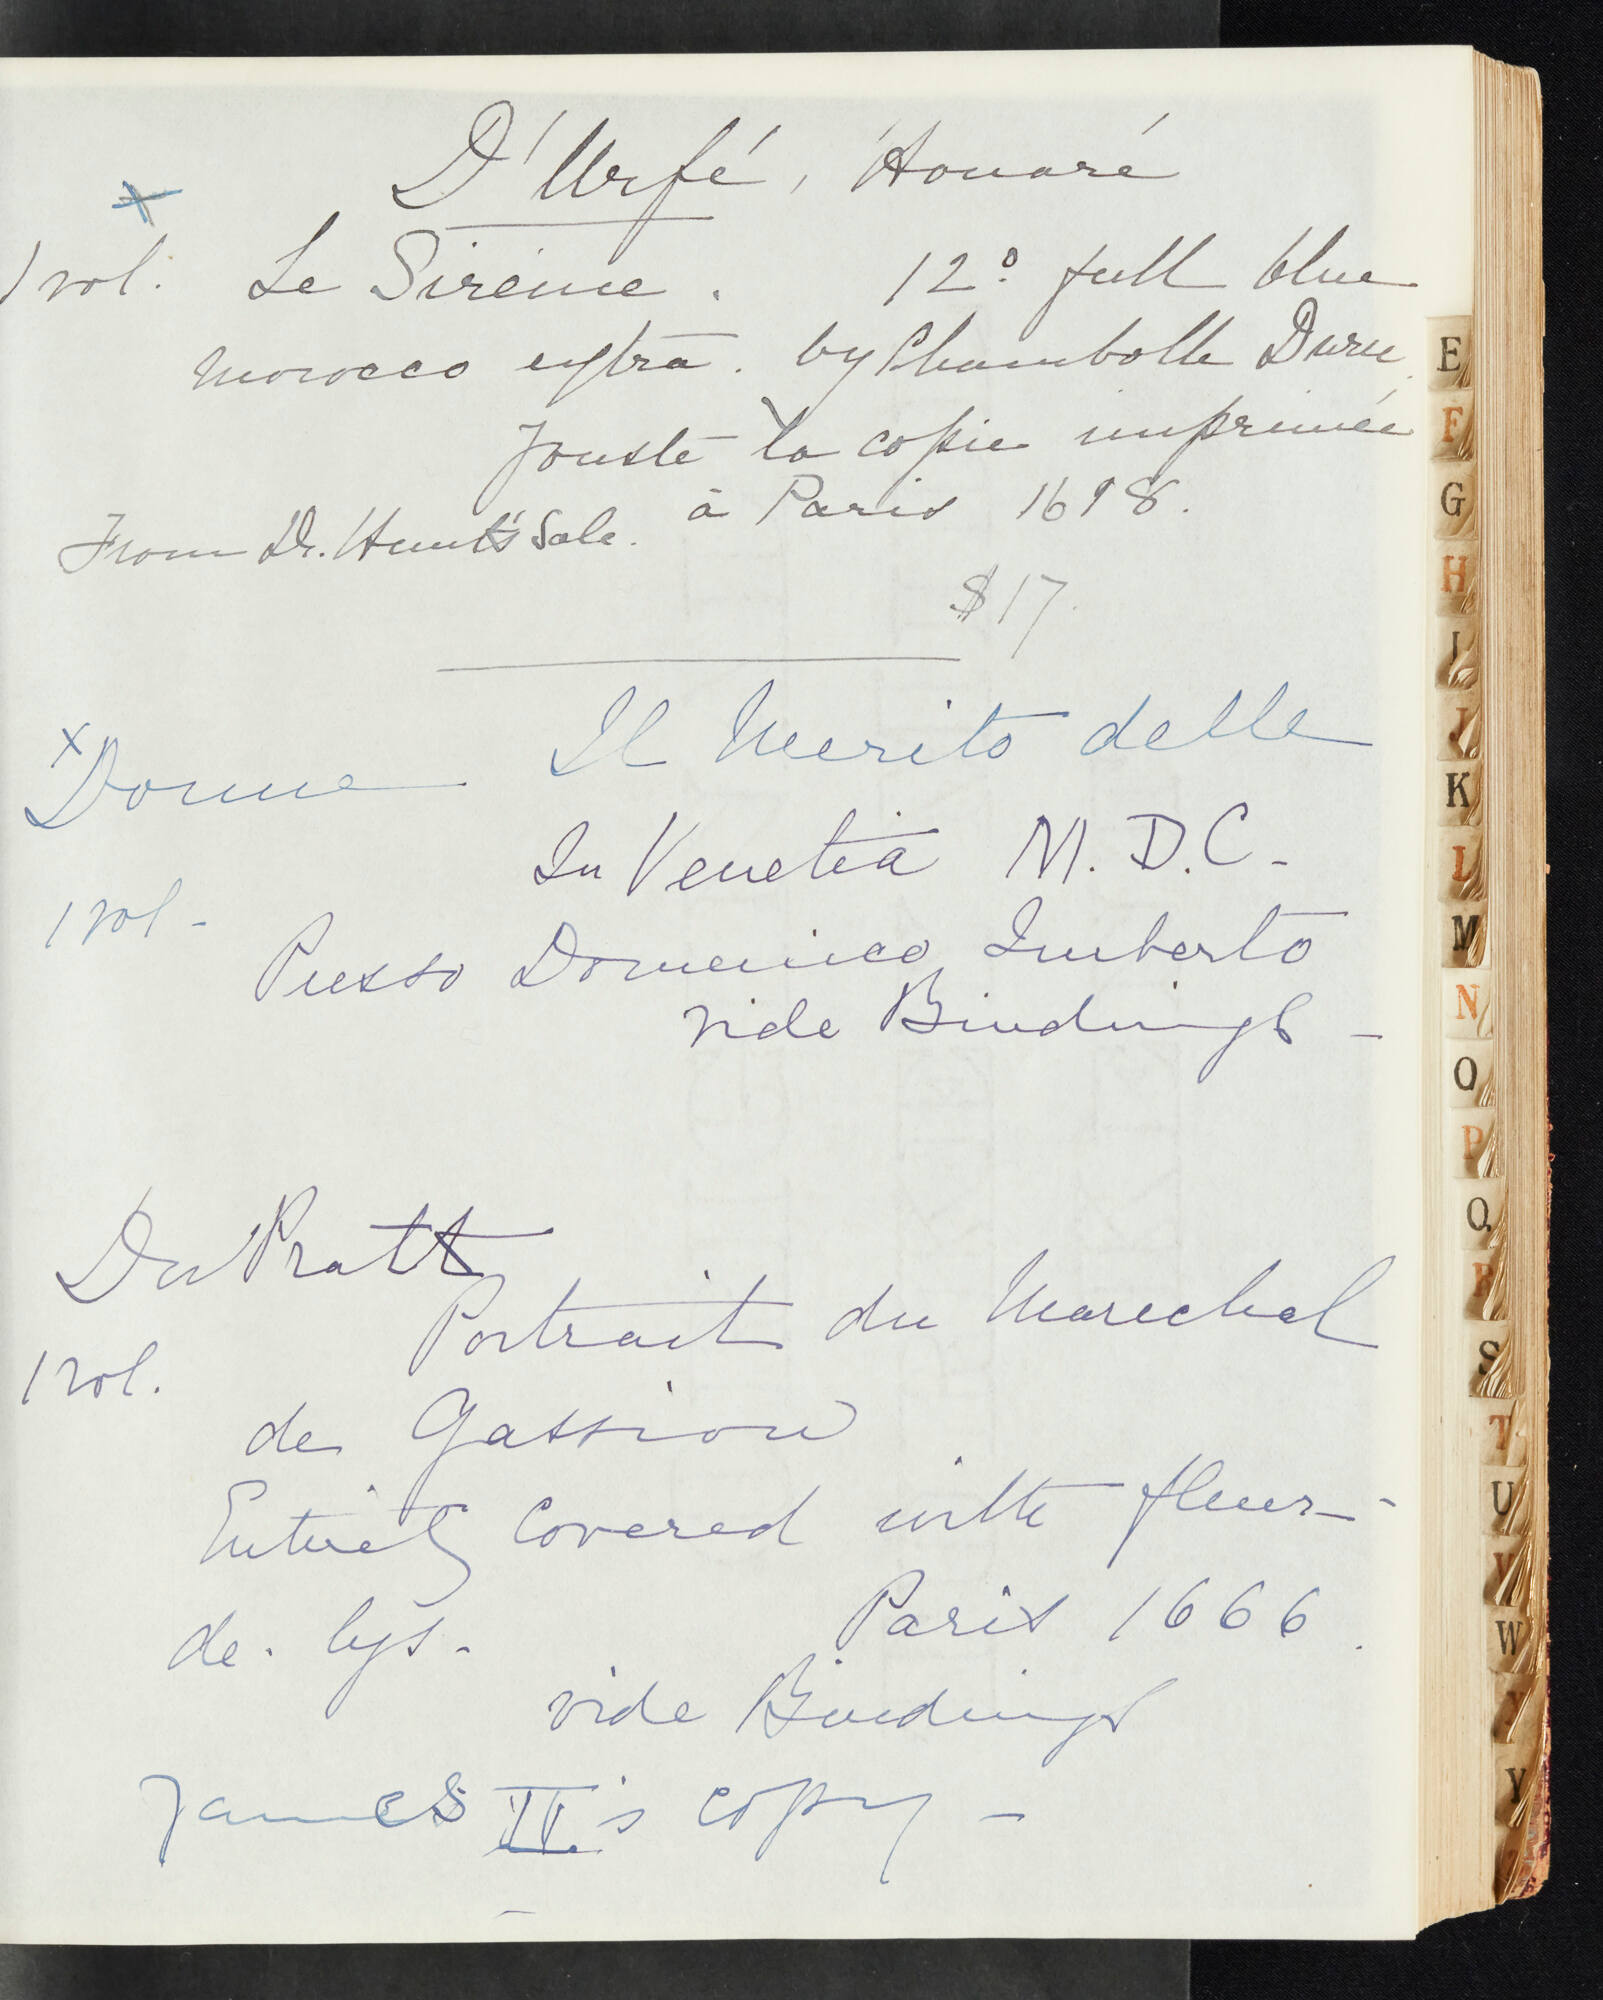 D'Urfé, Honoré
x
1 vol. Le Sireine. 12º. full blue
morocco extra. by Chambolle Duru.
Jouste la copie imprimée
à Paris 1618.
From Dr. Hunt's Sale.
$17.
x
Il Merito delle
Donne
In Venetia M.D.C-
1 vol-
Presso Domenico Imberto
vide Bindings-
Du Pratt
Portrait du Marechal
1 vol.
de Gassion
Entirely covered with fleur-
de. lys-
Paris 1666.
vide Bindings
James II's copy-
E
F
G
H
I
J
K
L
M
N
O
P
Q
R
S
T
U
V
W
X
Y